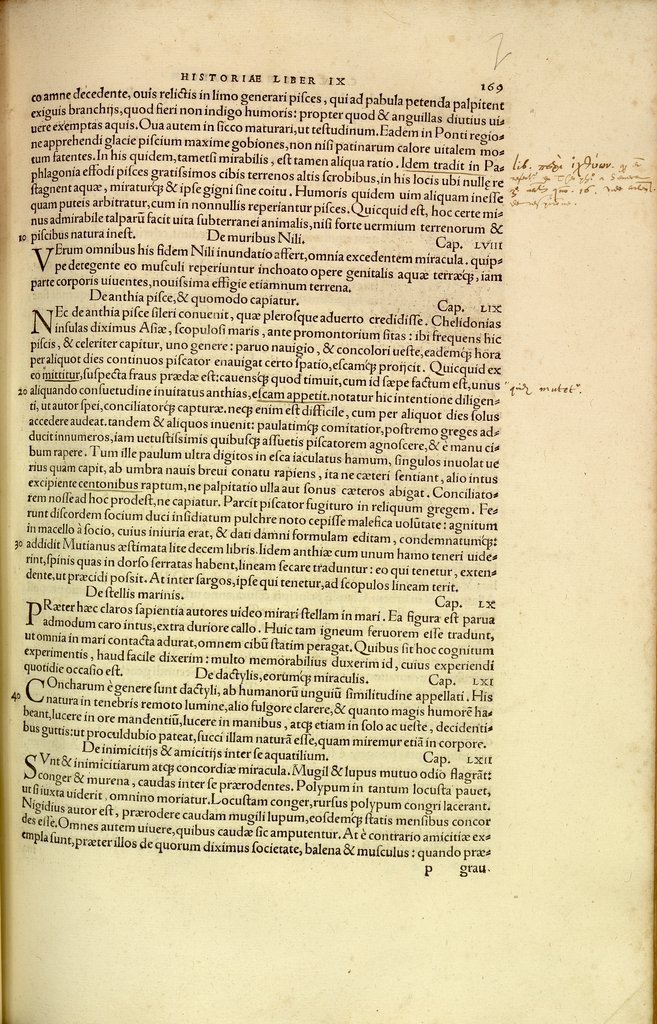 HISTORIAE LIBER IX
169
co amne decedente, ouis relictis in limo generari pisces, qui ad pabula petenda palpitent
exiguis branchijs, quod fieri non indigo humoris: propter quod & anguillas diutius ui⸗
uere exemptas aquis. Oua autem in sicco maturari, ut testudinum. Eadem in Ponti regio⸗
ne apprehendi glacie piscium maxime gobiones, non nisi patinarum calore uitalem mo⸗
tum fatentes. In his quidem, tametsi mirabilis, est tamen aliqua ratio. Idem tradit in Pa⸗
phlagonia effodi pisces gratissimos cibis terrenos altis scrobibus, in his locis ubi nullæ re
stagnent aquæ, miraturq; & ipse gigni sine coitu. Humoris quidem uim aliquam inesse
quam puteis arbitratur, cum in nonnullis reperiantur pisces. Quicquid est, hoc certe mi⸗
nus admirabile talparū facit uita subterranei animalis, nisi forte uermium terrenorum &
10 piscibus natura inest. De muribus Nili. Cap. LVIII
VErum omnibus his fidem Nili inundatio affert, omnia excedentem miracula. quip⸗
pe detegente eo musculi reperiuntur inchoato opere genitalis aquæ terræq;, iam
parte corporis uiuentes, nouissima effigie etiamnum terrena.
De anthia pisce, & quomodo capiatur. Cap. LIX
NEc de anthia pisce sileri conuenit, quæ plerosque aduerto credidisse. Chelidonias
insulas diximus Asiæ, scopulosi maris, ante promontorium sitas: ibi frequens hic
piscis, & celeriter capitur, uno genere: paruo nauigio, & concolori ueste, eademq; hora
per aliquot dies continuos piscator enauigat certo spatio, escamq; proijcit. Quicquid ex
eo mittitur, suspecta fraus prædæ est: cauensq; quod timuit, cum id sæpe factum est, unus
20 aliquando consuetudine inuitatus anthias, escam appetit. notatur hic intentione diligen⸗
ti, ut autor spei, conciliatorq; capturæ. neq; enim est difficile, cum per aliquot dies solus
accedere audeat. tandem & aliquos inuenit: paulatimq; comitatior, postremo greges ad⸗
ducit innumeros, iam uetustissimis quibusq; assuetis piscatorem agnoscere, & è manu ci⸗
bum rapere. Tum ille paulum ultra digitos in esca iaculatus hamum, singulos inuolat ue
rius quam capit, ab umbra nauis breui conatu rapiens, ita ne cæteri sentiant, alio intus
excipiente centonibus raptum, ne palpitatio ulla aut sonus cæteros abigat. Conciliato⸗
rem nosse ad hoc prodest, ne capiatur. Parcit piscator fugituro in reliquum gregem. Fe⸗
runt discordem socium duci insidiatum pulchre noto cepisse malefica uolūtate: agnitum
in macello à socio, cuius iniuria erat, & dati damni formulam editam, condemnatumq;:
30 addidit Mutianus æstimata lite decem libris. Iidem anthiæ cum unum hamo teneri uide⸗
rint, spinis quas in dorso serratas habent, lineam secare traduntur: eo qui tenetur, exten⸗
dente, ut præcidi possit. At inter sargos, ipse qui tenetur, ad scopulos lineam terit.
De stellis marinis. Cap. LX
PRæter hæc claros sapientia autores uideo mirari stellam in mari. Ea figura est parua
admodum caro intus, extra duriore callo. Huic tam igneum feruorem esse tradunt,
ut omnia in mari contacta adurat, omnem cibū statim peragat. Quibus sit hoc cognitum
experimentis, haud facile dixerim: multo memorabilius duxerim id, cuius experiendi
quotidie occasio est. De dactylis, eorumq; miraculis. Cap. LXI
40 COncharum è genere sunt dactyli, ab humanorū unguiū similitudine appellati. His
natura in tenebris remoto lumine, alio fulgore clarere, & quanto magis humorē ha⸗
beant, lucere in ore mandentiū, lucere in manibus, atq; etiam in solo ac ueste, decidenti⸗
bus guttis: ut proculdubio pateat, succi illam naturā esse, quam miremur etiā in corpore.
De inimicitijs & amicitijs inter se aquatilium. Cap. LXII
SVnt & inimicitiarum atq; concordiæ miracula. Mugil & lupus mutuo odio flagrāt:
conger & murena, caudas inter se prærodentes. Polypum in tantum locusta pauet,
ut si iuxta uiderit, omnino moriatur. Locustam conger, rursus polypum congri lacerant.
Nigidius autor est, prærodere caudam mugili lupum, eosdemq; statis mensibus concor
des esse. Omnes autem uiuere, quibus caudæ sic amputentur. At è contrario amicitiæ ex⸗
empla sunt, præter illos de quorum diximus societate, balena & musculus: quando præ⸗
p grau⸗
lib. περὶ ἰχθύων.